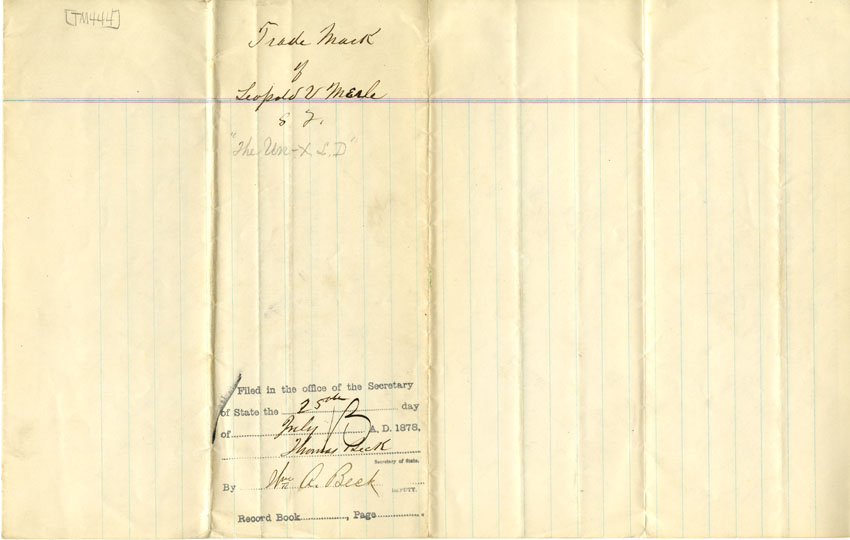 [TM444]
Trade Mark
of
Leopold V Merle
S F.
"The Un-X.L.D"
Filed in the office of the Secretary
of State the 25th day
of July A, D. 1878,
Thomas Beck
Secretary of State.
By Wm A. Beck DEPUTY.
Record Book , Page .